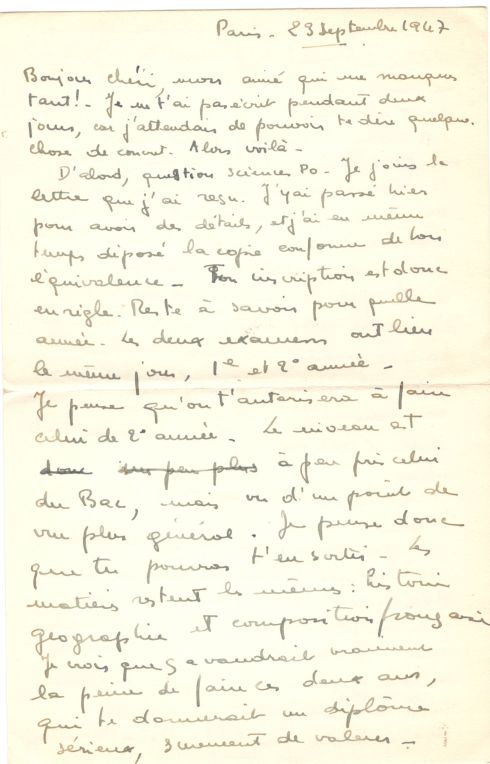 Paris - 23 Septembre 1947
Bonjour chéri, mon aimé qui me manques
tant! - Je ne t'ai pas écrit pendant deux
jours, car j'attendais de pouvoir te dire quelque
chose de concret. Alors voilà -
D'abord, question Sciences Po - Je joins la
lettre que j'ai reçu. J'y ai passé hier
pour avoir des détails, et j'ai en même
temps déposé la copie conforme de ton
équivalence - Ton inscription est donc
en règle. Reste à savoir pour quelle
année - Les deux examens ont lieu
le même jour, 1e et 2e année -
Je pense qu'on t'autorisera à faire
celui de 2e année - Le niveau est
donc un peu plus à peu près celui
du Bac, mais vu d'un point de
vue plus général. Je pense donc
que tu pourras t'en sortir - Les
matières restent les mêmes : histoire
géographie et composition française
Je crois que ça vaudrait vraiment
la peine de faire ces deux ans,
qui te donnerait un diplôme
sérieux, surement de valeur -